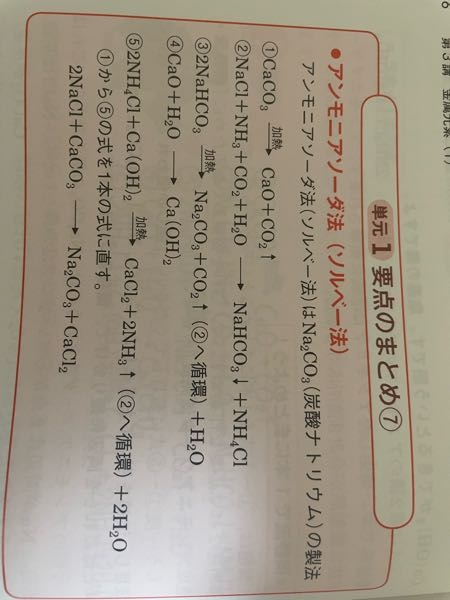 6 第3講 金属元素(1)
単元1 要点のまとめ⑦
●アンモニアソーダ法(ソルベー法)
アンモニアソーダ法(ソルベー法)はNa₂CO₃(炭酸ナトリウム)の製法
①CaCO₃ 加熱→ CaO+CO₂↑
②NaCl+NH₃+CO₂+H₂O → NaHCO₃↓+NH₄Cl
③2NaHCO₃ 加熱→ Na₂CO₃+CO₂↑(②へ循環)+H₂O
④CaO+H₂O → Ca(OH)₂
⑤2NH₄Cl+Ca(OH)₂ 加熱→ CaCl₂+2NH₃↑(②へ循環)+2H₂O
①から⑤の式を1本の式に直す。
2NaCl+CaCO₃ → Na₂CO₃+CaCl₂